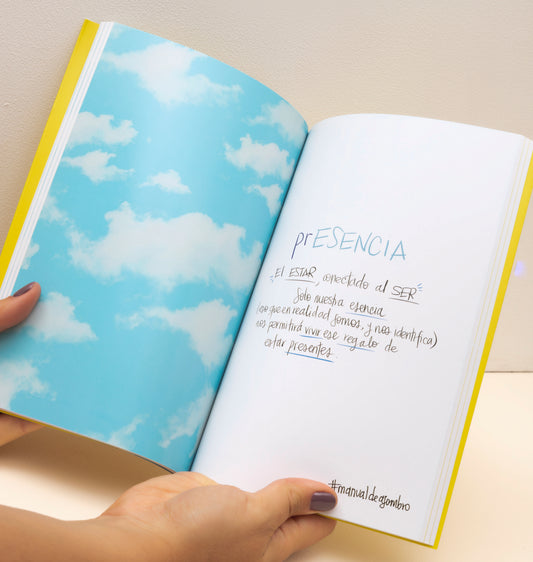 prESENCIA
El ESTAR, conectado al SER
Solo nuestra esencia
(eso que en realidad somos, y nos identifica)
nos permitirá vivir ese regalo de
estar presentes.
#manualdeasombro